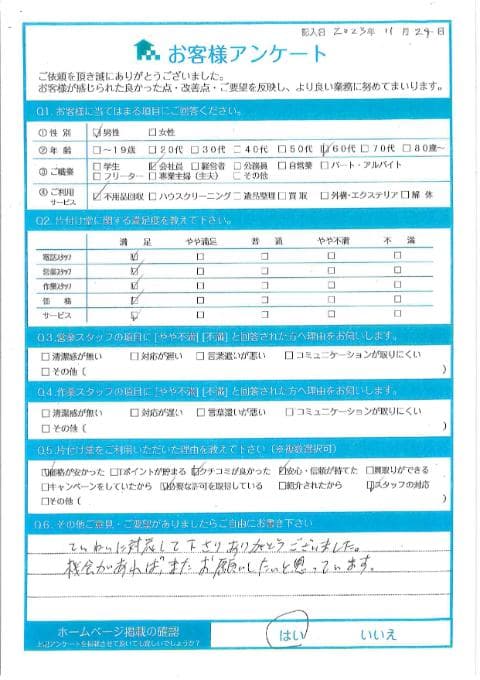 記入日 2023年 11月 29日
お客様アンケート
ご依頼を頂き誠にありがとうございました。
お客様が感じられた良かった点・改善点・ご要望を反映し、より良い業務に努めてまいります。
Q1. お客様に当てはまる項目にご回答ください。
①性 別 ☑男性 □女性
②年 齢 □～19歳 □20代 □30代 □40代 □50代 ☑60代 □70代 □80歳～
③ご職業 □学生 ☑会社員 □経営者 □公務員 □自営業 □パート・アルバイト
□フリーター □専業主婦（主夫） □その他
④ご利用サービス ☑不用品回収 □ハウスクリーニング □遺品整理 □買 取 □外構・エクステリア □解 体
Q2. 片付け堂に関する満足度を教えて下さい。
満 足 やや満足 普 通 やや不満 不 満
電話スタッフ ☑ □ □ □ □
営業スタッフ ☑ □ □ □ □
作業スタッフ ☑ □ □ □ □
価 格 ☑ □ □ □ □
サービス ☑ □ □ □ □
Q3.営業スタッフの項目に［やや不満］［不満］と回答された方へ理由をお伺いします。
□清潔感が無い □対応が遅い □言葉遣いが悪い □コミュニケーションが取りにくい
□その他（ ）
Q4.作業スタッフの項目に［やや不満］［不満］と回答された方へ理由をお伺いします。
□清潔感が無い □対応が遅い □言葉遣いが悪い □コミュニケーションが取りにくい
□その他（ ）
Q5.片付け堂をご利用いただいた理由を教えて下さい（※複数選択可）
☑価格が安かった □Tポイントが貯まる ☑クチコミが良かった ☑安心・信頼が持てた □買取りができる
□キャンペーンをしていたから ☑必要な許可を取得している □紹介されたから ☑スタッフの対応
□その他（ ）
Q6. その他ご意見・ご要望がありましたらご自由にお書き下さい
ていねいに対応して下さりありがとうございました。
機会があれば、またお願いしたいと思っています。
ホームページ掲載の確認 はい いいえ
上記アンケートを掲載させて頂いても宜しいでしょうか？